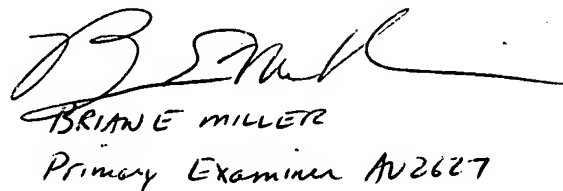 BRIAN E MILLER
Primary Examiner AU2627